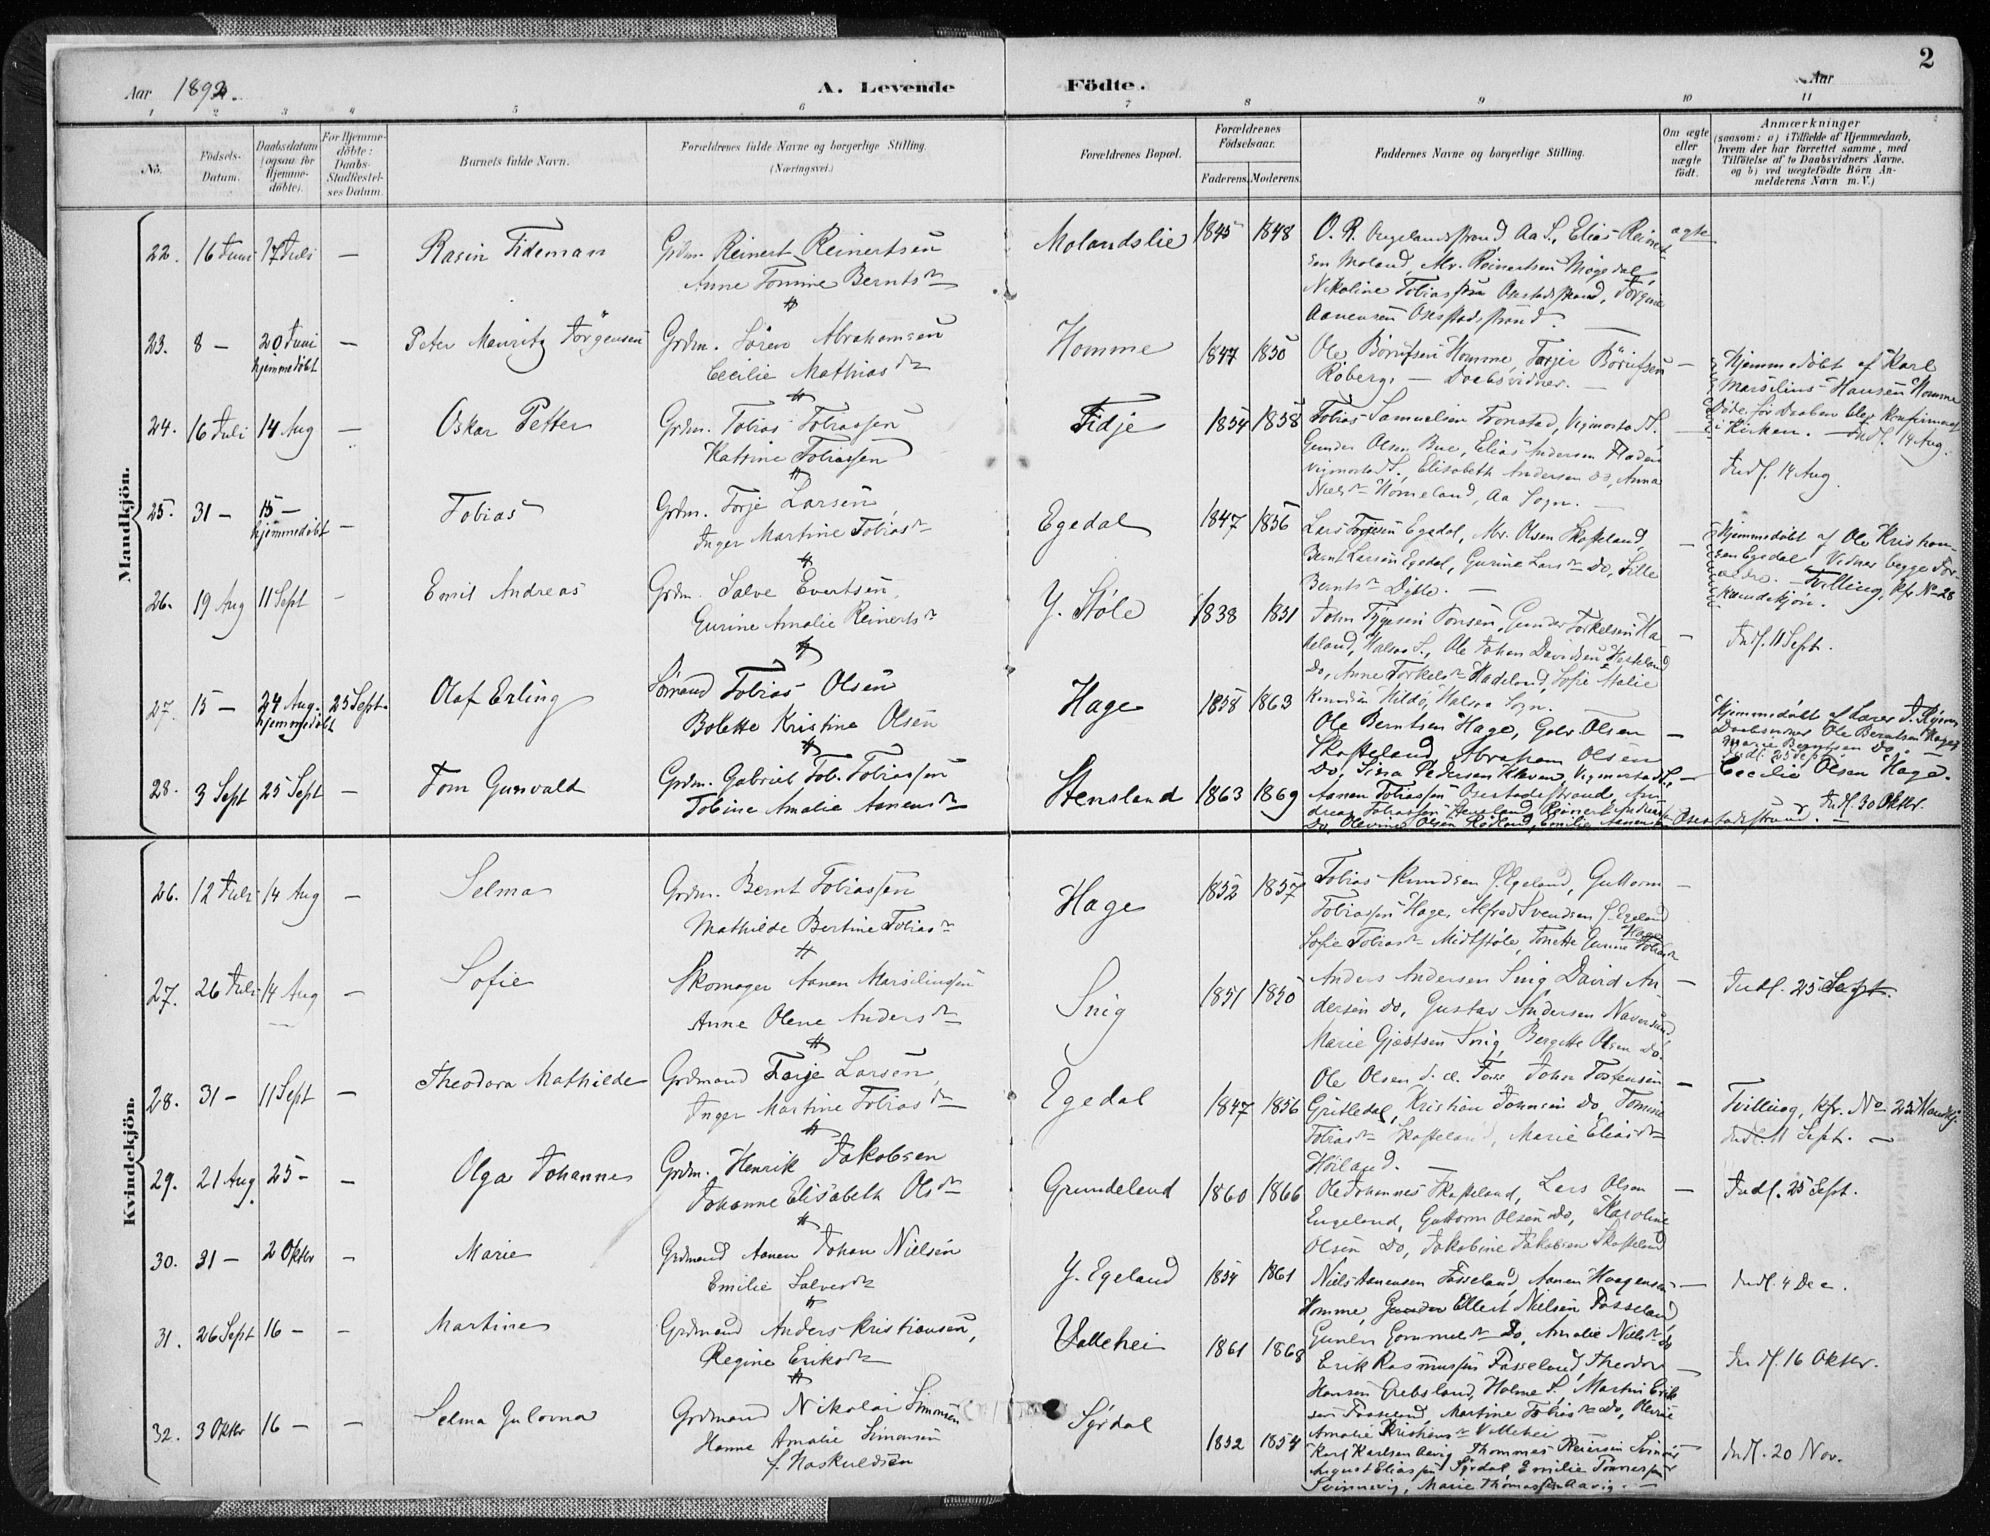 2
Aar 1892.
A. Levende Födte.
Aar
1 2 3 4 5 6 7 8 9 10 11
No.
Födsels-
Datum.
Daabsdatum
(ogsaa for
Hjemme-
döbte).
For Hjemme-
döbte:
Daabs-
Stadfæstel-
ses Datum.
Barnets fulde Navn.
Forældrenes fulde Navne og borgerlige Stilling.
(Næringsvei.)
Forældrenes Bopæl.
Forældrenes
Födselsaar.
Faderens. Moderens.
Faddernes Navne og borgerlige Stilling.
Om ægte
eller
uægte
födt.
Anmærkninger
(saasom: a) i Tilfælde af Hjemmedaab,
hvem der har forrettet samme, med
Tilföielse af to Daabsvidners Navne.
og b) ved uægtefödte Börn An-
melderens Navn m. V.)
Mandkjön.
22. 16 Juni 17 Juli — Rasin Tideman
Grdm. Reinert Reinertsen
Anne Tomine Berntsdr
Molandslie 1845 1848
O. R. Aa S., Elias Reinert-
sen Moland, Reinertsen
Nikoline Tobiassen Osestadstrand,
Aanensen Osestadstrand.
ægte
23. 8 — 20 Juni hjemmedöbt — Peter Mauritz Jörgensen
Grdm. Sören Abrahamsen
Cecilie Mathiasdr
Homme 1847 1850
Ole Homme,
Roberg, — Daabsvidner. —
Hjemmedöbt af Karl
Marselius Hansen Homme
Döde för Daaben blev konfirmeret
i Kirken. — Indf. 14 Aug.
24. 16 Juli 14 Aug — Oskar Petter
Grdm. Tobias Tobiassen
Katrine Tobiassen
Tidje 1854 1858
Tobias Samuelsen Tronstad, Vigmostad S.
Gunder Olsen Bue, Elias Andersen
Vigmostad S. Elisabeth Andersen do, Anna
Nielsdr Aa Sogn.
Indf. 14 Aug.
25. 31 — 15 — hjemmedöbt — Tobias
Grdm. Torje Larsen,
Inger Martine Tobiasdr
Egedal 1847 1856
Lars Egedal, Olsen Skofteland
Bernt Larsen Egedal, Gurine Larsdr Do, Sille
Berntsdr —
Hjemmedöbt af Ole Kristian-
sen Egedal Vidner begge For-
ældre. — Tvilling, kfr. No 28
Kvindekjön.
26. 19 Aug 11 Sept — Emil Andreas
Grdm. Salve Evertsen,
Gurine Amalie Reinertsdr
Y. Støle 1838 1851
John Gunder Torkelsen Ha-
deland, Halsaa S., Ole Johan Davidsen
Do, Anne Torkelsdr Hadeland, Sofie Malie
Knudsen Hildö, Halsaa Sogn.
Indf. 11 Sept.
27. 15 — 24 Aug. hjemmedöbt 25 Sept. Olaf Erling
Sömand Tobias Olsen
Bolette Kristine Olsen
Hage 1858 1863
Ole Berntsen Hage, Olsen
Skofteland, Abraham Olsen
Do, Pedersen Vigmostad S.
Hjemmedöbt af Lærer
Ole Berntsen Hage,
Marie Berntsen Do. —
Indf. 25 Sept
Cecilie Olsen Hage.
28. 3 Sept 25 Sept — Tom Gunvald
Grdm. Gabriel Tob. Tobiassen
Tobine Amalie Aanensdr
Stensland 1863 1869
Aanen Tobiassen Osestadstrand, An-
dreas Tobiassen Stensland, Reinert
Do, Olevine Olsen Emilie Osestadstrand. —
Indf. 30 Oktbr.
Kvindekjön.
26. 12 Juli 14 Aug — Selma
Grdm. Bernt Tobiassen
Mathilde Bertine Tobiasdr
Hage 1852 1857
Tobias Knudsen Ö. Egeland, Guttorm
Tobiassen Hage, Alfred Svendsen Ö. Egeland
Sofie Tobiasdr Midtstöle, Tonette Hage
27. 26 Juli 14 Aug — Sofie
Skomager Aanen Marsiliussen
Anne Olene Andersdr
Snig 1851 1850
Anders Andersen Snig, David An-
dersen do, Gustav Andersen
Marie Snig, Bergitte Olsen do.
Indf. 25 Sept.
28. 31 — 11 Sept — Theodora Mathilde
Grdmand Torje Larsen,
Inger Martine Tobiasdr
Egedal 1847 1856
Ole Olsen Johan Torkensen
Kristian Johnsen Do, Tomine
Tobiasdr Skofteland, Marie Eliasdr
Höiland. —
Tvilling, kfr. No 25 Mandkj.
Indf. 11 Sept. —
29. 21 Aug. 25 — — Olga Johanne
Grdm. Henrik Jakobsen
Johanne Elisabeth Olsdr
Grundeland 1860 1866
Ole Johannes Skofteland, Lars Olsen
Engeland, Guttorm Olsen do, Karoline
Olsen Do, Jakobine Jakobsen Skofteland
Indf. 25 Sept.
30. 31 — 2 Oktbr — Marie
Grdmand Aanen Johan Nielsen
Emilie Salvesdr
Y. Egeland 1854 1861
Niels Aanensen Fasseland, Aanen Haagensen
Homme, Ellert Nielsen Fasseland
Do, Amalie Nielsdr do
Indf. 4 Dec.
31. 26 Sept 16 — — Martine
Grdmand Anders Kristiansen,
Regine Eriksdr
Vallehei 1861 1868
Erik Rasmussen Fasseland, Theodor
Hansen Holme S. Martin Erik-
sen Fasseland, Martine Do,
Amalie Kristiansdr Vallehei
Indf. 16 Oktbr.
32. 3 Oktbr 16 — — Selma Julovna
Grdmand Nikolai Simonsen
Hanne Amalie Simonsen
f. Haskuldsen
Syrdal 1852 1854
Karl Karlsen Aavig, Thommas Reiersen Svinvig
August Eliassen Syrdal, Emilie
Svinnevig, Marie Thomassen Aavig. —
Indf. 20 Nov.